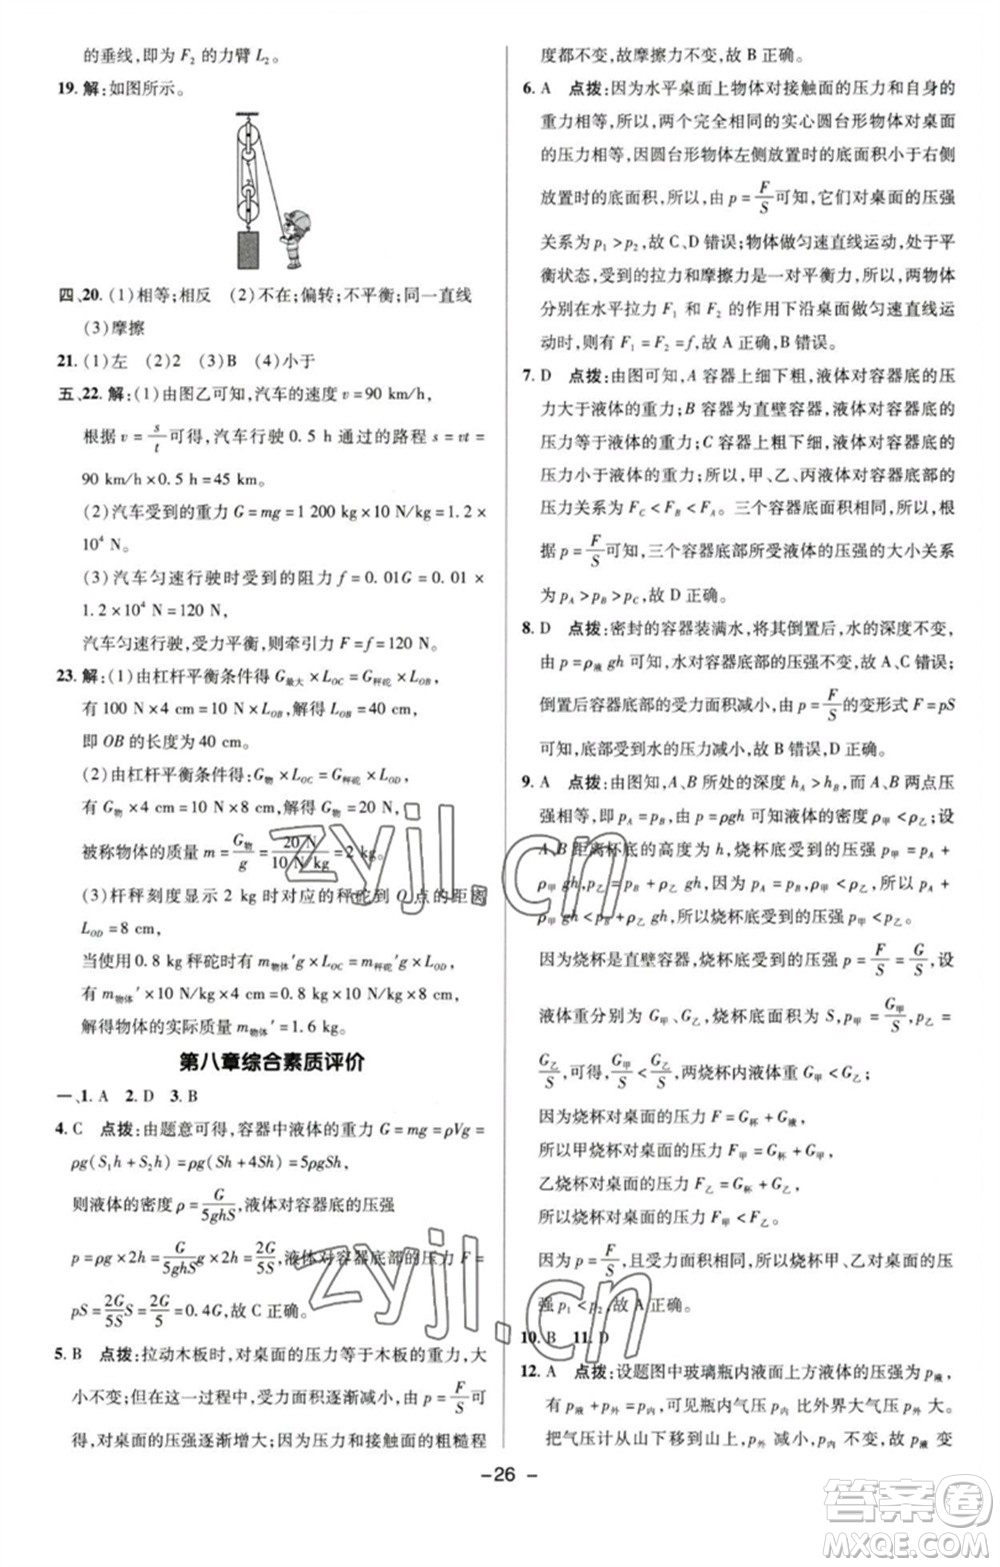 的垂线,即为 F₂ 的力臂 L₂。
19. 解:如图所示。
四、20. (1)相等;相反 (2)不在;偏转;不平衡;同一直线
(3)摩擦
21. (1)左 (2)2 (3)B (4)小于
五、22. 解:(1)由图乙可知,汽车的速度 v=90 km/h,
根据 v=s/t 可得,汽车行驶 0.5 h 通过的路程 s=vt=
90 km/h×0.5 h=45 km。
(2)汽车受到的重力 G=mg=1 200 kg×10 N/kg=1.2×
10⁴ N。
(3)汽车匀速行驶时受到的阻力 f=0.01G=0.01×
1.2×10⁴ N=120 N,
汽车匀速行驶,受力平衡,则牵引力 F=f=120 N。
23. 解:(1)由杠杆平衡条件得 G最大×L_OC=G秤砣×L_OB,
有 100 N×4 cm=10 N×L_OB,解得 L_OB=40 cm,
即 OB 的长度为 40 cm。
(2)由杠杆平衡条件得:G物×L_OC=G秤砣×L_OD,
有 G物×4 cm=10 N×8 cm,解得 G物=20 N,
被称物体的质量 m=G物/g=20 N/10 N/kg=2 kg。
(3)杆秤刻度显示 2 kg 时对应的秤砣到 O 点的距离
L_OD=8 cm,
当使用 0.8 kg 秤砣时有 m物体′g×L_OC=m秤砣′g×L_OD,
有 m物体′×10 N/kg×4 cm=0.8 kg×10 N/kg×8 cm,
解得物体的实际质量 m物体′=1.6 kg。
第八章综合素质评价
一、1. A 2. D 3. B
4. C 点拨:由题意可得,容器中液体的重力 G=mg=ρVg=
ρg(S₁h+S₂h)=ρg(Sh+4Sh)=5ρghS,
则液体的密度 ρ=G/5ghS,液体对容器底的压强
p=ρg×2h=G/5ghS g×2h=2G/5S,液体对容器底部的压力 F=
pS=2G/5S S=2G/5=0.4G,故 C 正确。
5. B 点拨:拉动木板时,对桌面的压力等于木板的重力,大
小不变;但在这一过程中,受力面积逐渐减小,由 p=F/S 可
得,对桌面的压强逐渐增大;因为压力和接触面的粗糙程
度都不变,故摩擦力不变,故 B 正确。
6. A 点拨:因为水平桌面上物体对接触面的压力和自身的
重力相等,所以,两个完全相同的实心圆台形物体对桌面
的压力相等,因圆台形物体左侧放置时的底面积小于右侧
放置时的底面积,所以,由 p=F/S 可知,它们对桌面的压强
关系为 p₁>p₂,故 C、D 错误;物体做匀速直线运动,处于平
衡状态,受到的拉力和摩擦力是一对平衡力,所以,两物体
分别在水平拉力 F₁ 和 F₂ 的作用下沿桌面做匀速直线运
动时,则有 F₁=F₂=f,故 A 正确、B 错误。
7. D 点拨:由图可知,A 容器上细下粗,液体对容器底的压
力大于液体的重力;B 容器为直壁容器,液体对容器底的
压力等于液体的重力;C 容器上粗下细,液体对容器底的
压力小于液体的重力;所以,甲、乙、丙液体对容器底部的
压力关系为 F_C<F_B<F_A。三个容器底面积相同,所以,根
据 p=F/S 可知,三个容器底部所受液体的压强的大小关系
为 p_A>p_B>p_C,故 D 正确。
8. D 点拨:密封的容器装满水,将其倒置后,水的深度不变,
由 p=ρ液gh 可知,水对容器底部的压强不变,故 A、C 错误;
倒置后容器底部的受力面积减小,由 p=F/S 的变形式 F=pS
可知,底部受到水的压力减小,故 B 错误,D 正确。
9. A 点拨:由图知,A、B 所处的深度 h_A>h_B,而 A、B 两点压
强相等,即 p_A=p_B,由 p=ρgh 可知液体的密度 ρ甲<ρ乙;设
A、B 距离杯底的高度为 h,烧杯底受到的压强 p甲=p_A+
ρ甲gh,p乙=p_B+ρ乙gh,因为 ρ甲<ρ乙,p_A=p_B,所以 p_A+
ρ甲gh<p_B+ρ乙gh,所以烧杯底受到的压强 p甲<p乙。
因为烧杯是直壁容器,烧杯底受到的压强 p=F/S=G/S,设
液体重分别为 G甲、G乙,烧杯底面积为 S,p甲=G甲/S,p乙=
G乙/S,所以 G甲/S<G乙/S,两烧杯内液体重 G甲<G乙;
因为烧杯对桌面的压力 F=G杯+G液,
所以甲烧杯对桌面的压力 F甲=G杯+G甲,
乙烧杯对桌面的压力 F乙=G杯+G乙,
所以烧杯对桌面的压力 F甲<F乙。
因为 p=F/S,且受力面积相同,所以烧杯甲、乙对桌面的压
强 p₁<p₂,故 A 正确。
10. B 11. D
12. A 点拨:设题图中玻璃瓶内液面上方液体的压强为 p液,
有 p液+p外=p内,可见瓶内气压 p内 比外界大气压 p外 大。
把气压计从山下移到山上,p外 减小,p内 不变,故 p液 变
-26-
zyjl.cn
zyjl.cn
答案圈
MXQE.COM